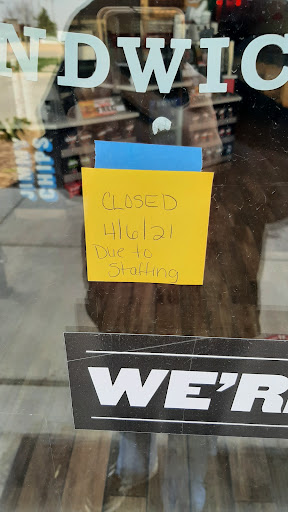 NDWIC
JIMMY
CHIPS
CLOSED
4/6/21
Due to
Staffing
WE'R